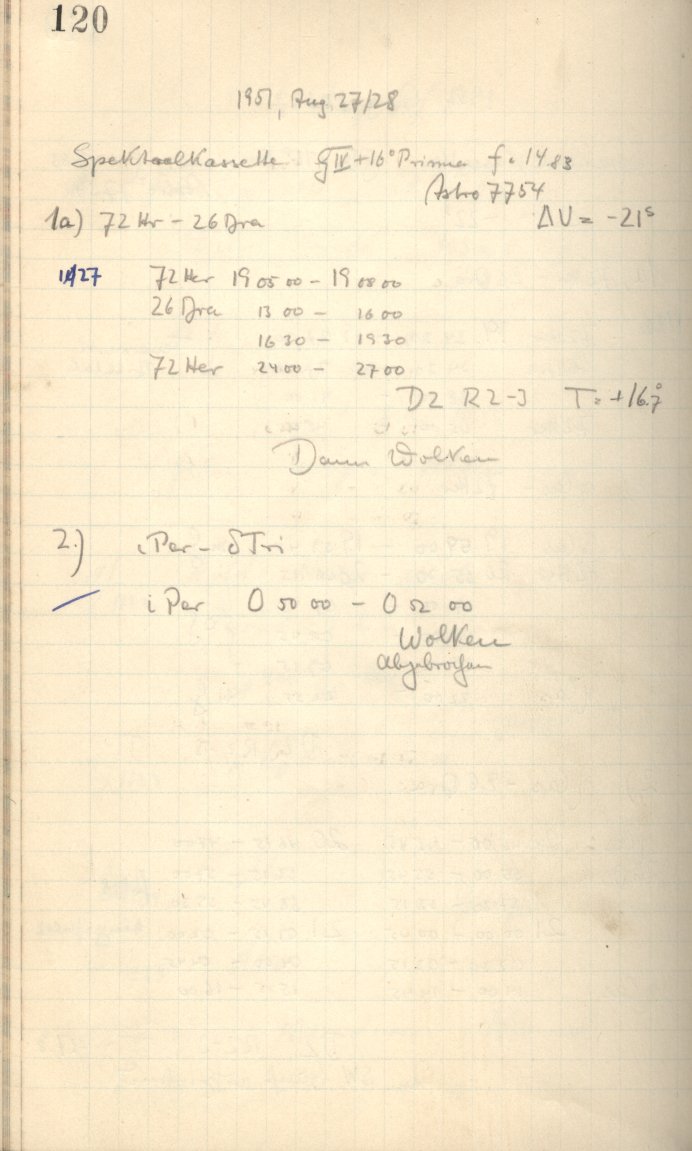 120
1951, Aug 27/28
Spektralkassette gIV+16° Prisma f = 14 83
Astro 7754
1a) 72 Hr – 26 Dra ΔU = -21ˢ
27 72 Her 19 05 00 – 19 08 00
26 Dra 13 00 – 16 00
16 30 – 19 30
72 Her 24 00 – 27 00
D2 R2-3 T = +16.°7
Dann Wolken
2.) ι Per – δ Tri
ι Per 0 50 00 – 0 52 00
Wolken
abgebrochen